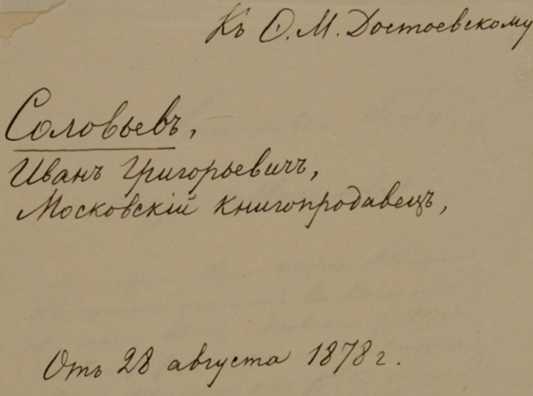 Къ Ѳ. М. Достоевскому
Соловьевъ,
Иванъ Григорьевичъ,
Московскій книгопродавецъ,
Отъ 28 августа 1878 г.